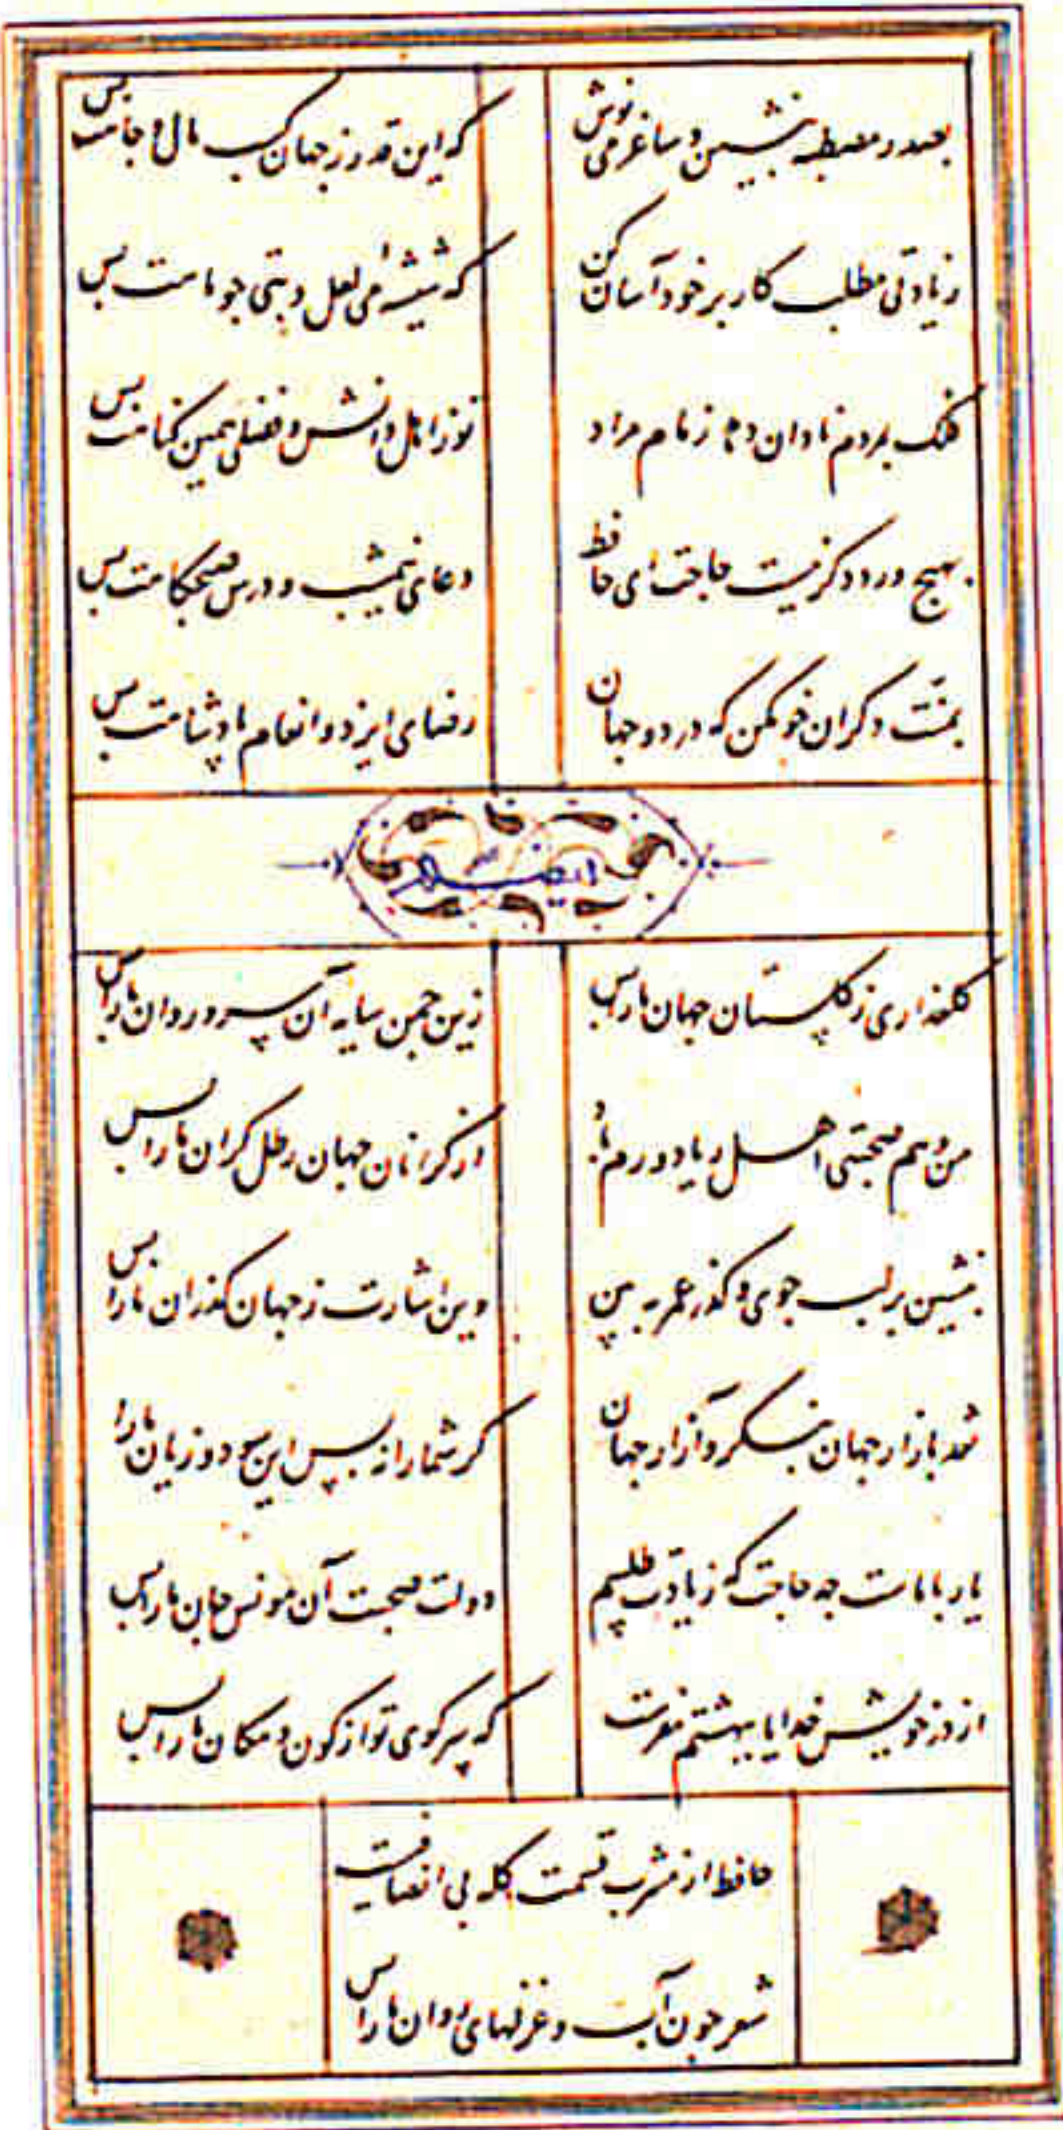 بصدر مصطبه بنشین و ساغر می نوش که این قدر ز جهان کسب مال و جاهت بس
زیادتی مطلب کار بر خود آسان کن که شیشه می لعل و بتی چو ماهت بس
فلک بمردم نادان دهد زمام مراد تو ز اهل دانش و فضلی همین گناهت بس
بهیچ ورد دگر نیست حاجت ای حافظ دعای نیمشب و درس صبحگاهت بس
بمنت دگران خو مکن که در دو جهان رضای ایزد و انعام پادشاهت بس
ایضاً له
گلعذاری ز گلستان جهان ما را بس زین چمن سایه آن سرو روان ما را بس
من و هم صحبتی اهل ریا دورم باد از گرانان جهان رطل گران ما را بس
بنشین بر لب جوی و گذر عمر به بین وین اشارت ز جهان گذران ما را بس
نقد بازار جهان بنگر و آزار جهان گر شما را نه بس این سود و زیان ما را
یار با ماست چه حاجت که زیادت طلبیم دولت صحبت آن مونس جان ما را بس
از در خویش خدایا ببهشتم مفرست که سر کوی تو از کون و مکان ما را بس
حافظ از مشرب قسمت گله بی انصافیست
شعر چون آب و غزلهای روان ما را بس